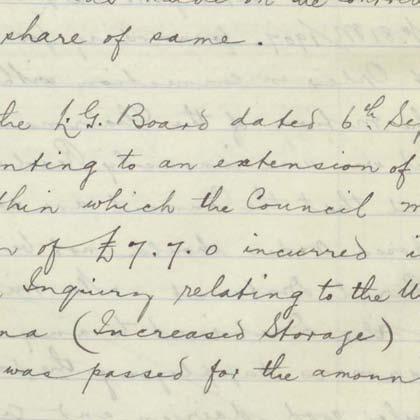 share of same.
the L.G. Board dated 6th Sep
nting to an extension of
thin which the Council m
of £7.7.0 incurred i
Inquiry relating to the W
na (Increased Storage)
was passed for the amoun